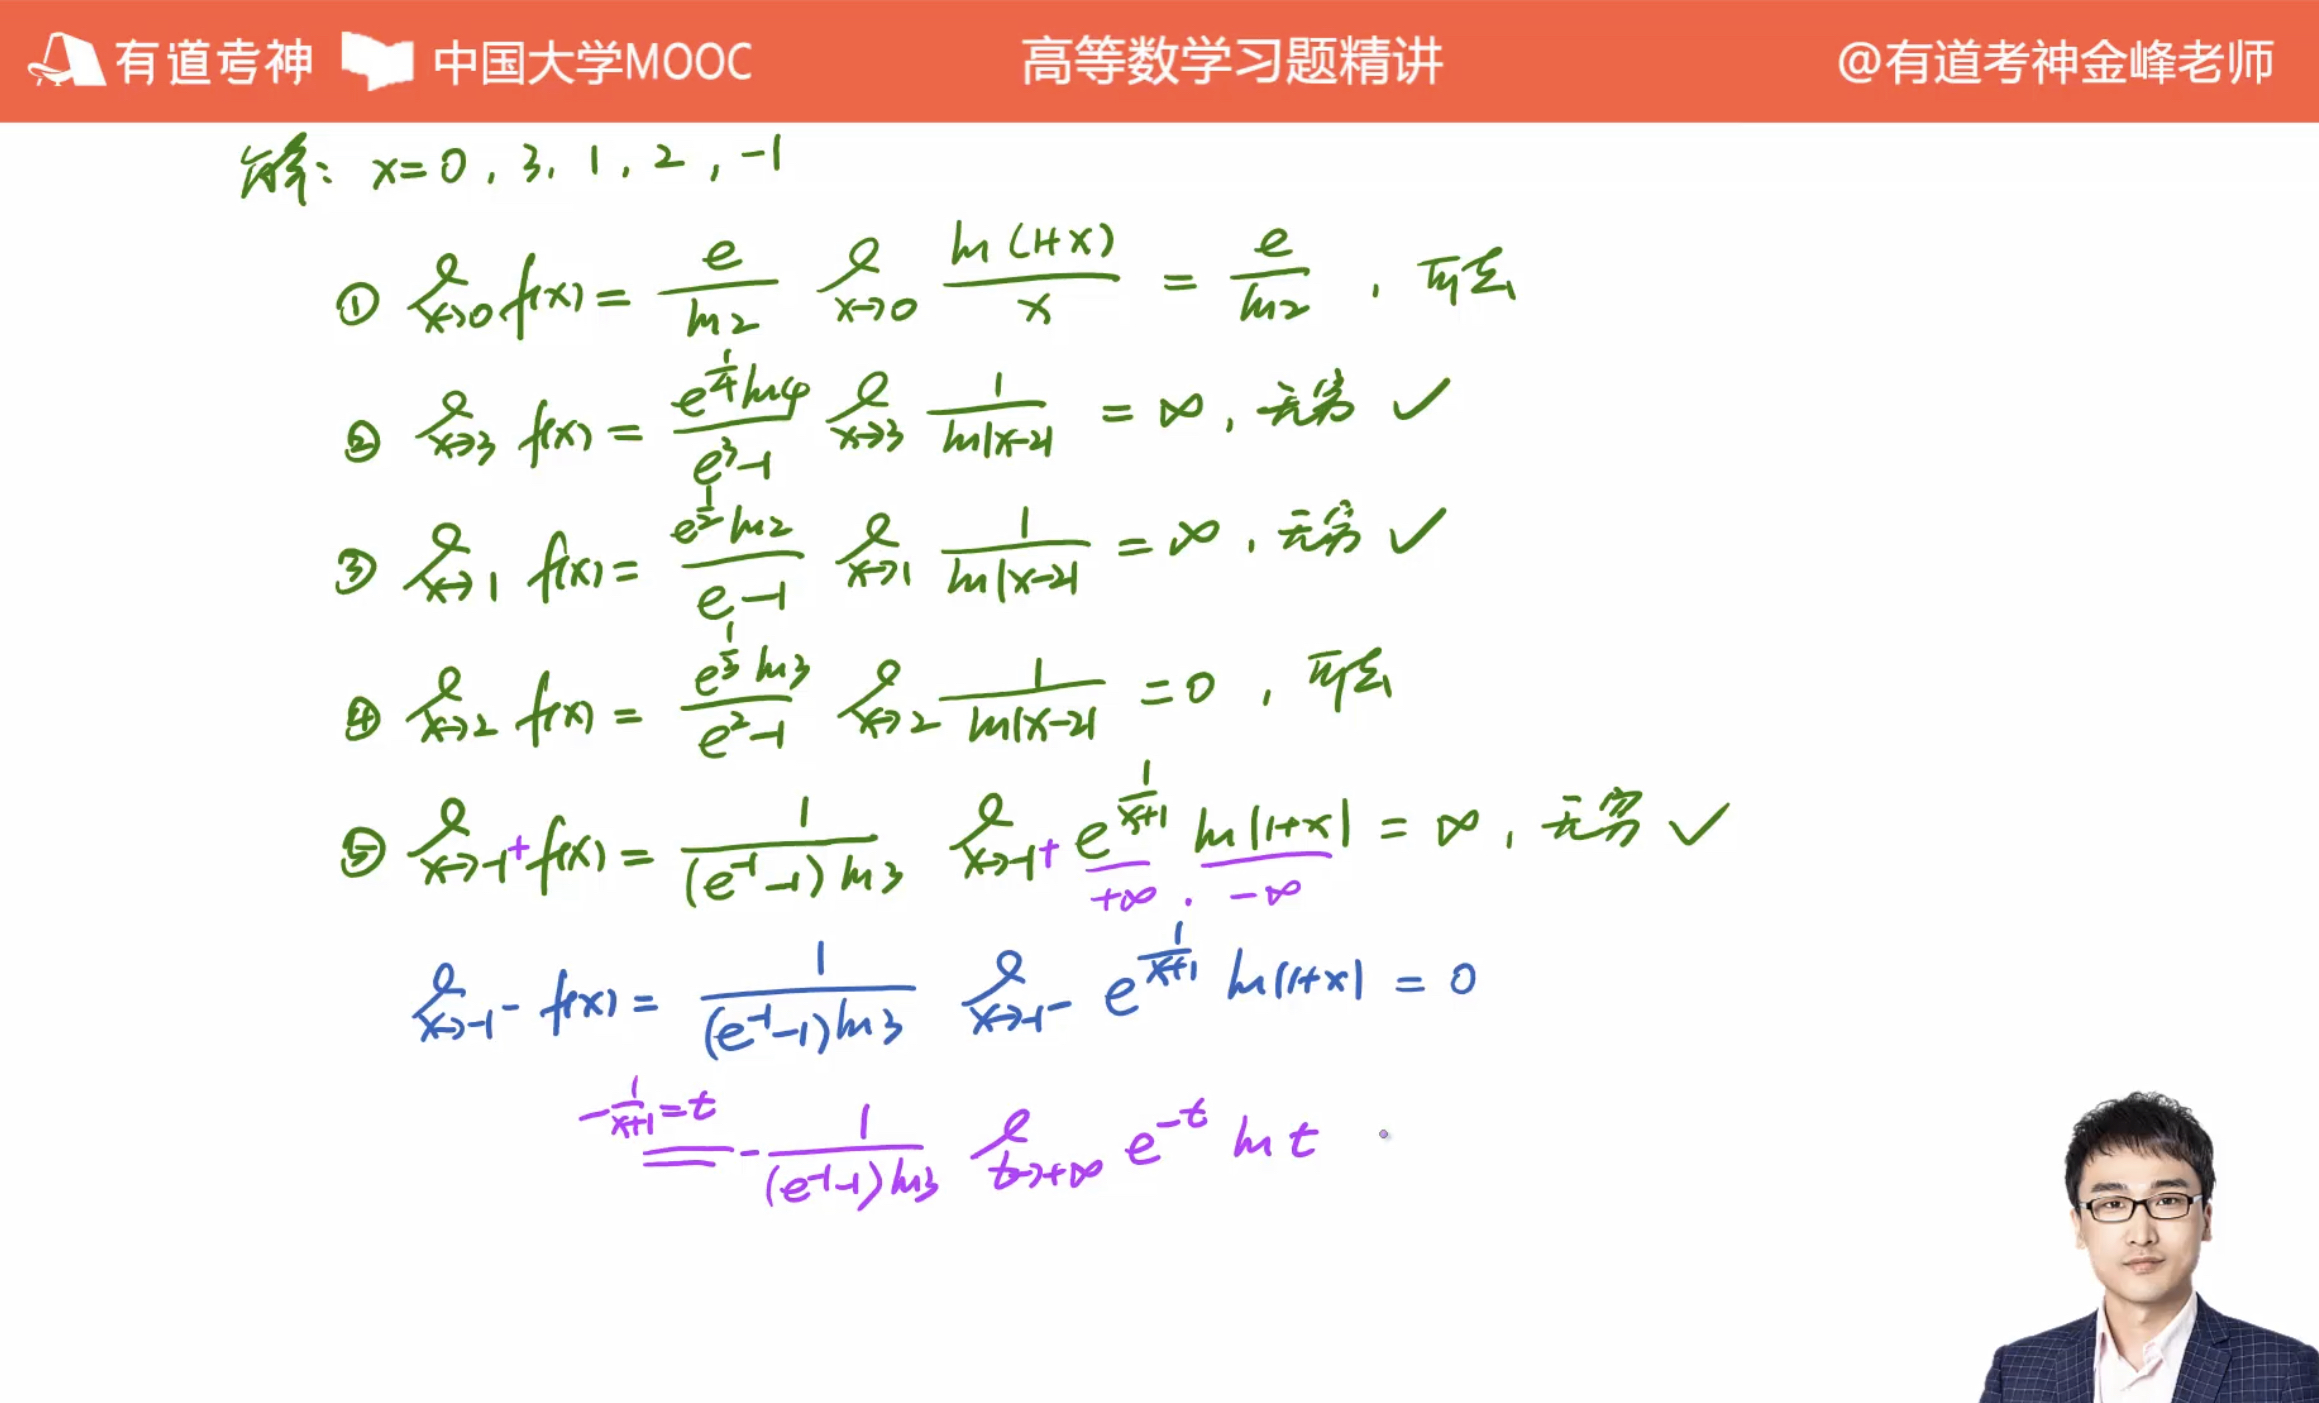 有道考神 中国大学MOOC 高等数学习题精讲 @有道考神金峰老师
解: x=0, 3, 1, 2, -1
① lim_{x→0} f(x) = e/ln2 lim_{x→0} ln(1+x)/x = e/ln2, 可去
② lim_{x→3} f(x) = e^{1/4}ln4/(e^3-1) lim_{x→3} 1/ln|x-2| = ∞, 无穷 ✓
③ lim_{x→1} f(x) = e^{1/2}ln2/(e-1) lim_{x→1} 1/ln|x-2| = ∞, 无穷 ✓
④ lim_{x→2} f(x) = e^{1/3}ln3/(e^2-1) lim_{x→2} 1/ln|x-2| = 0, 可去
⑤ lim_{x→-1+} f(x) = 1/((e^{-1}-1)ln3) lim_{x→-1+} e^{1/(x+1)} ln|1+x| = ∞, 无穷 ✓
+∞ · -∞
lim_{x→-1-} f(x) = 1/((e^{-1}-1)ln3) lim_{x→-1-} e^{1/(x+1)} ln|1+x| = 0
-1/(x+1)=t
= -1/((e^{-1}-1)ln3) lim_{t→+∞} e^{-t} ln t